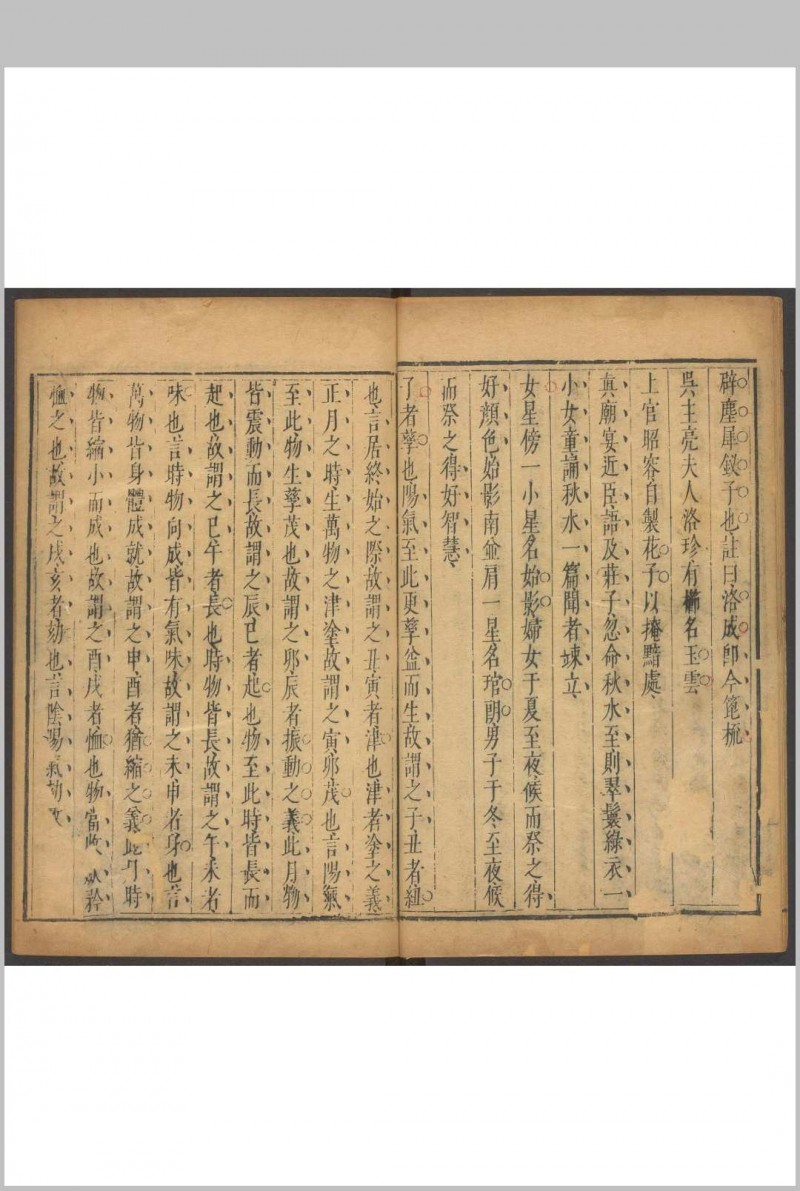 辟塵犀釵子也註曰洛成卽今箆梳
吳主亮夫人洛珍有櫛名玉雲
上官昭容自製花子以掩黥處
真廟宴近臣語及莊子忽命秋水至則翠鬟綠衣一
小女童誦秋水一篇聞者竦立
女星傍一小星名始影婦女于夏至夜候而祭之得
好顏色始影南並肩一星名琯朗男子于冬至夜候
而祭之得好智慧
子者孳也陽氣至此更孳益而生故謂之子丑者紐
也言居終始之際故謂之丑寅者津也津者塗之義
正月之時生萬物之津塗故謂之寅卯茂也言陽氣
至此物生孳茂也故謂之卯辰者振動之義此月物
皆震動而長故謂之辰巳者起也物至此時皆長而
起也故謂之巳午者長也時物皆長故謂之午未者
味也言時物向成皆有氣味故謂之未申者身也言
萬物皆身體成就故謂之申酉者猶縮之義此月時
物皆縮小而成也故謂之酉戌者恤也物當收斂矜
恤之也故謂之戌亥者劾也言陰陽氣劾